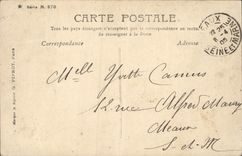 Série N. 870
CARTE POSTALE
Tous les pays étrangers n'acceptent pas la correspondance au recto,
se renseigner à la Poste
Correspondance
Adresse
MEAUX
SEINE-ET-MARNE
Melle Yvette Camus
12 rue Alfred Maury
Meaux
S-et-M